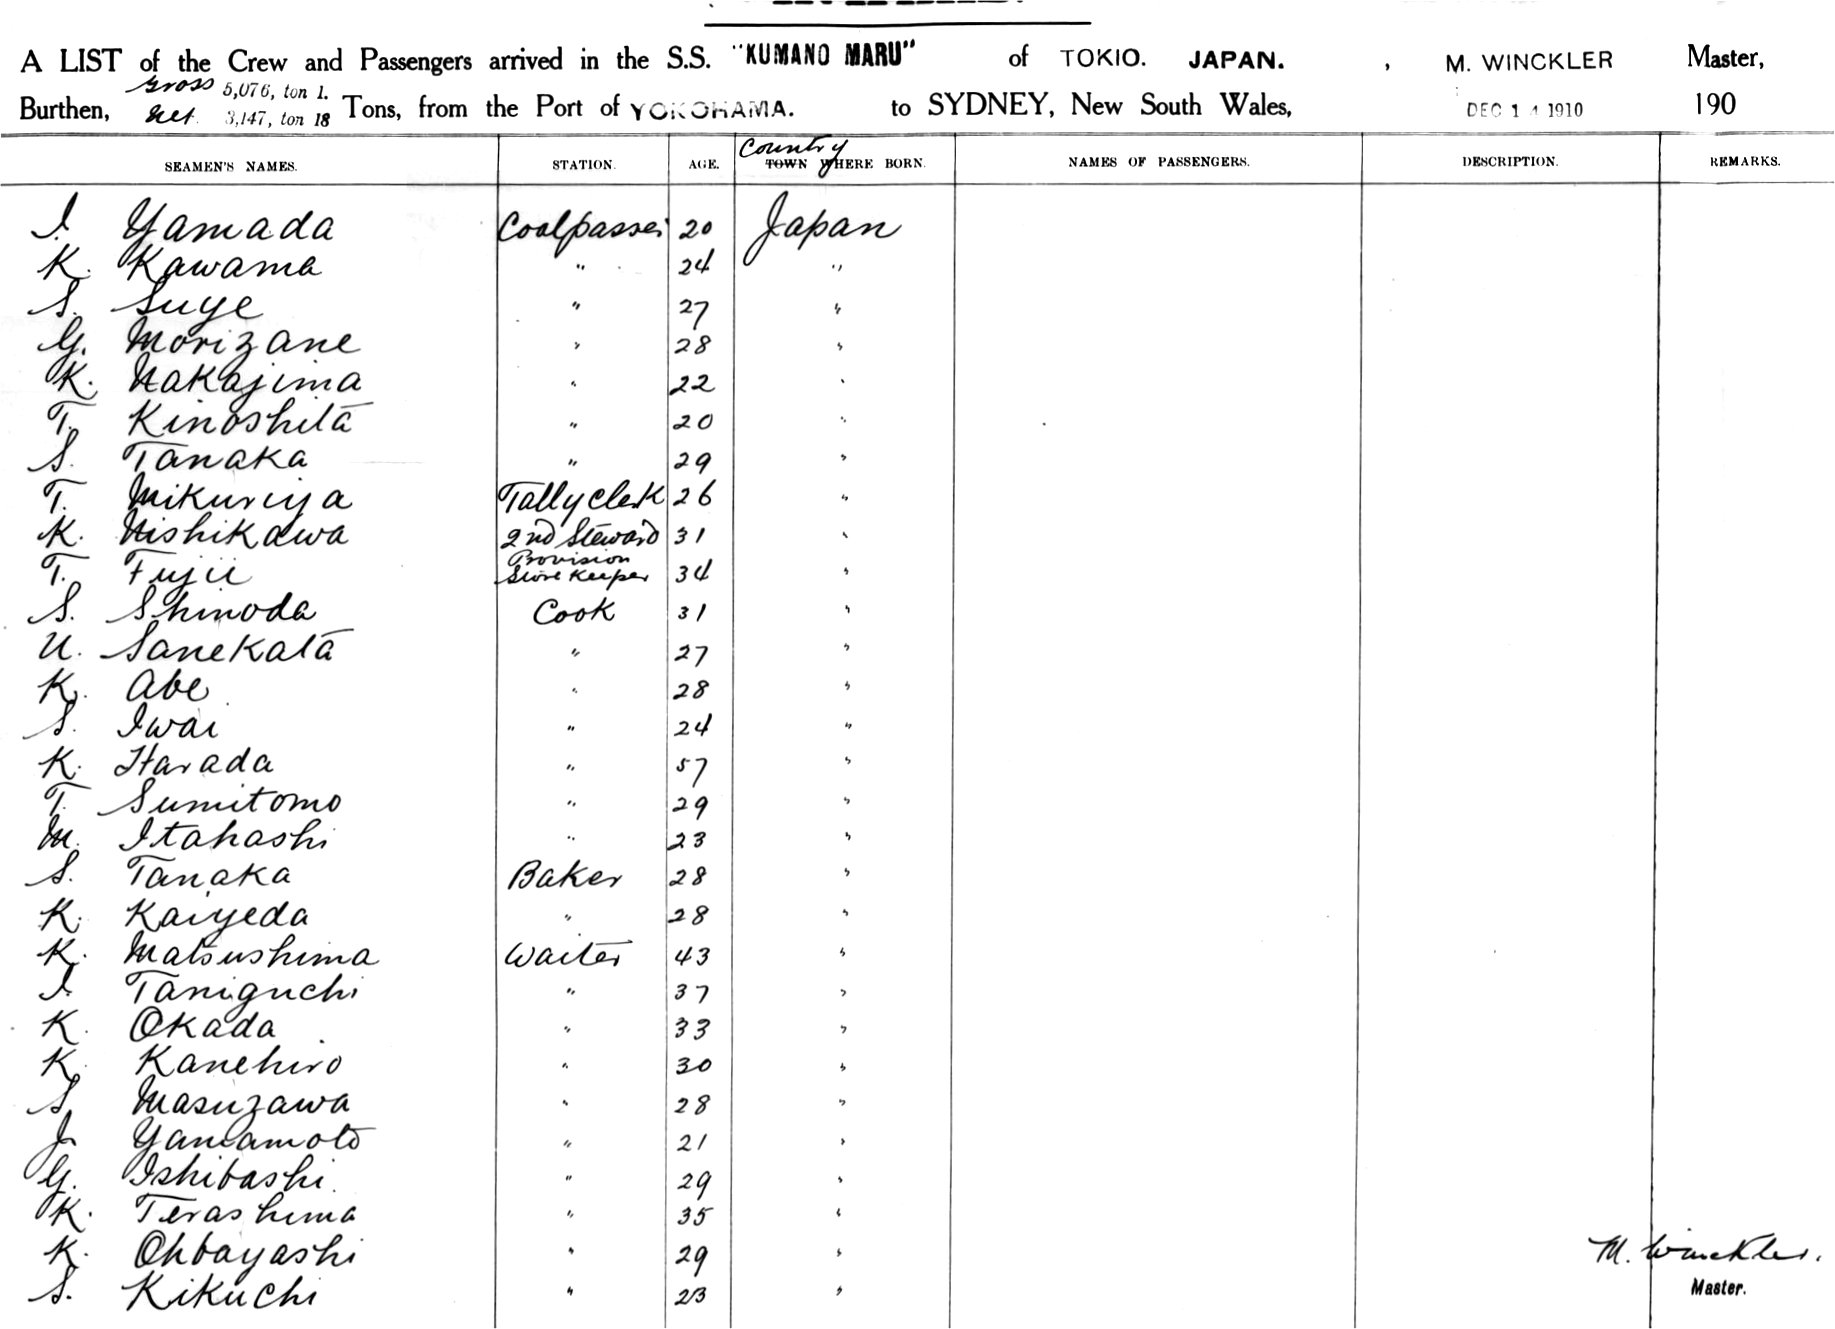 A LIST of the Crew and Passengers arrived in the S.S. "KUMANO MARU" of TOKIO. JAPAN. , M. WINCKLER Master,
Burthen, Gross 5,076, ton 1. Net. 3,147, ton 18 Tons, from the Port of YOKOHAMA. to SYDNEY, New South Wales, DEC 14 1910 190
SEAMEN'S NAMES. STATION. AGE. TOWN Country WHERE BORN. NAMES OF PASSENGERS. DESCRIPTION. REMARKS.
I. Yamada Coalpasser 20 Japan
K. Kawama " 24 "
S. Suye " 27 "
G. Morizane " 28 "
K. Nakajima " 22 "
T. Kinoshita " 20 "
S. Tanaka " 29 "
T. Mikuriya Tally clerk 26 "
K. Nishikawa 2nd Steward 31 "
T. Fujii Provision Store Keeper 34 "
S. Shinoda Cook 31 "
U. Sanekata " 27 "
K. Abe " 28 "
S. Iwai " 24 "
K. Harada " 57 "
T. Sumitomo " 29 "
M. Itahashi " 23 "
S. Tanaka Baker 28 "
K. Kaiyeda " 28 "
K. Matsushima Waiter 43 "
I. Taniguchi " 37 "
K. Okada " 33 "
K. Kanehiro " 30 "
S. Masuzawa " 28 "
J. Yamamoto " 21 "
G. Ishibashi. " 29 "
K. Terashima " 35 "
K. Ohbayashi " 29 "
S. Kikuchi " 23 "
M. Winckler.
Master.